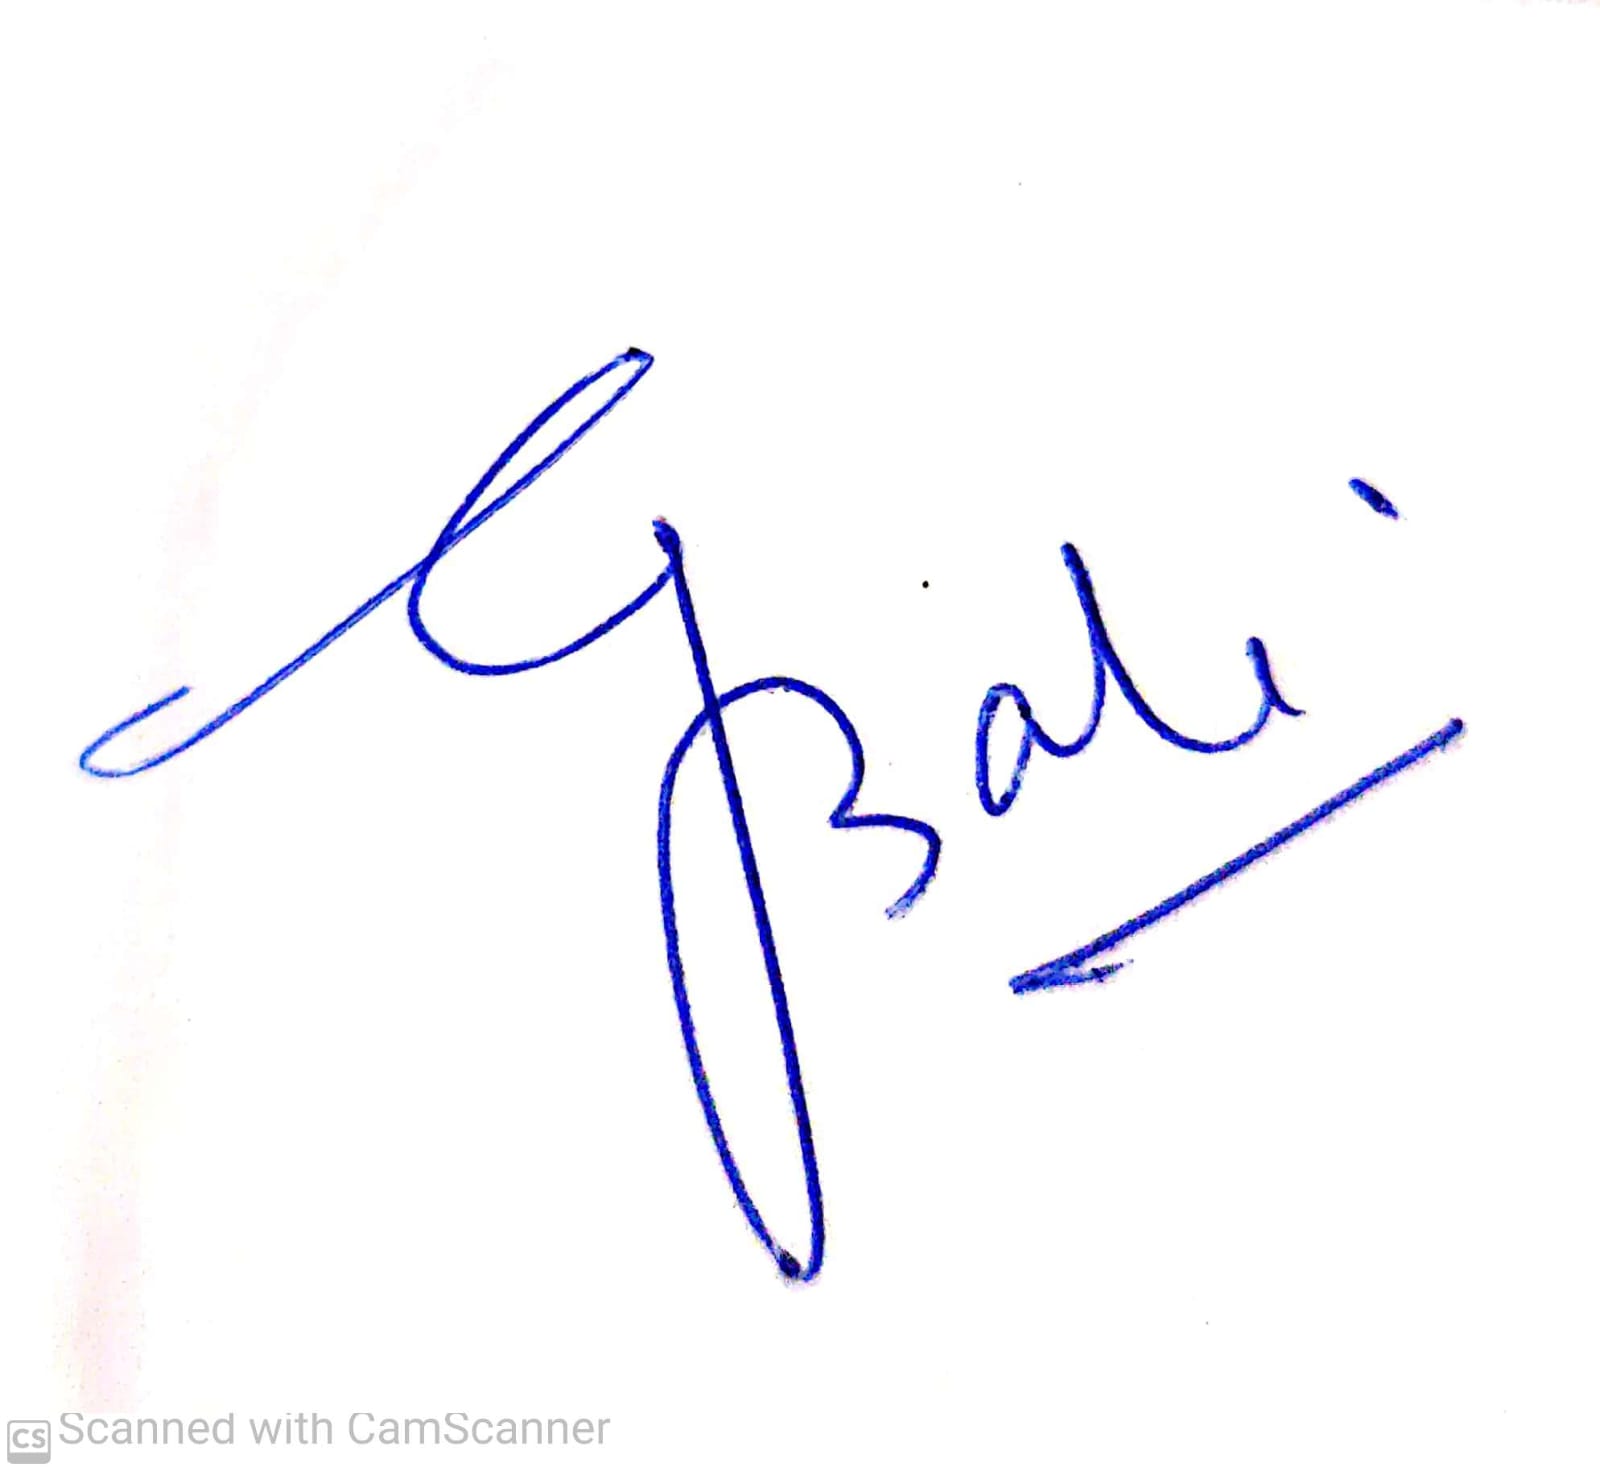 GBali
CS Scanned with CamScanner